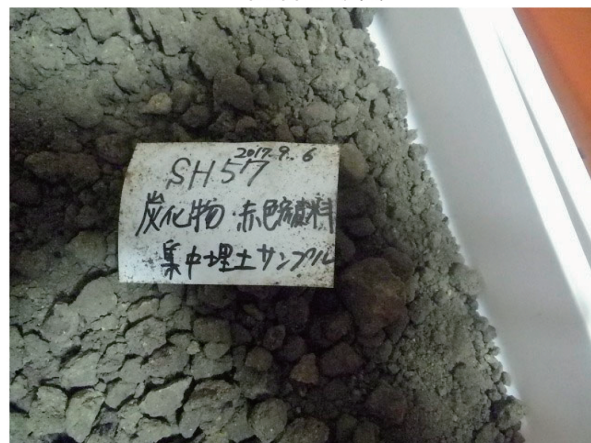 2017.9.6
SH57
炭化物・赤色顔料
集中埋土サンプル